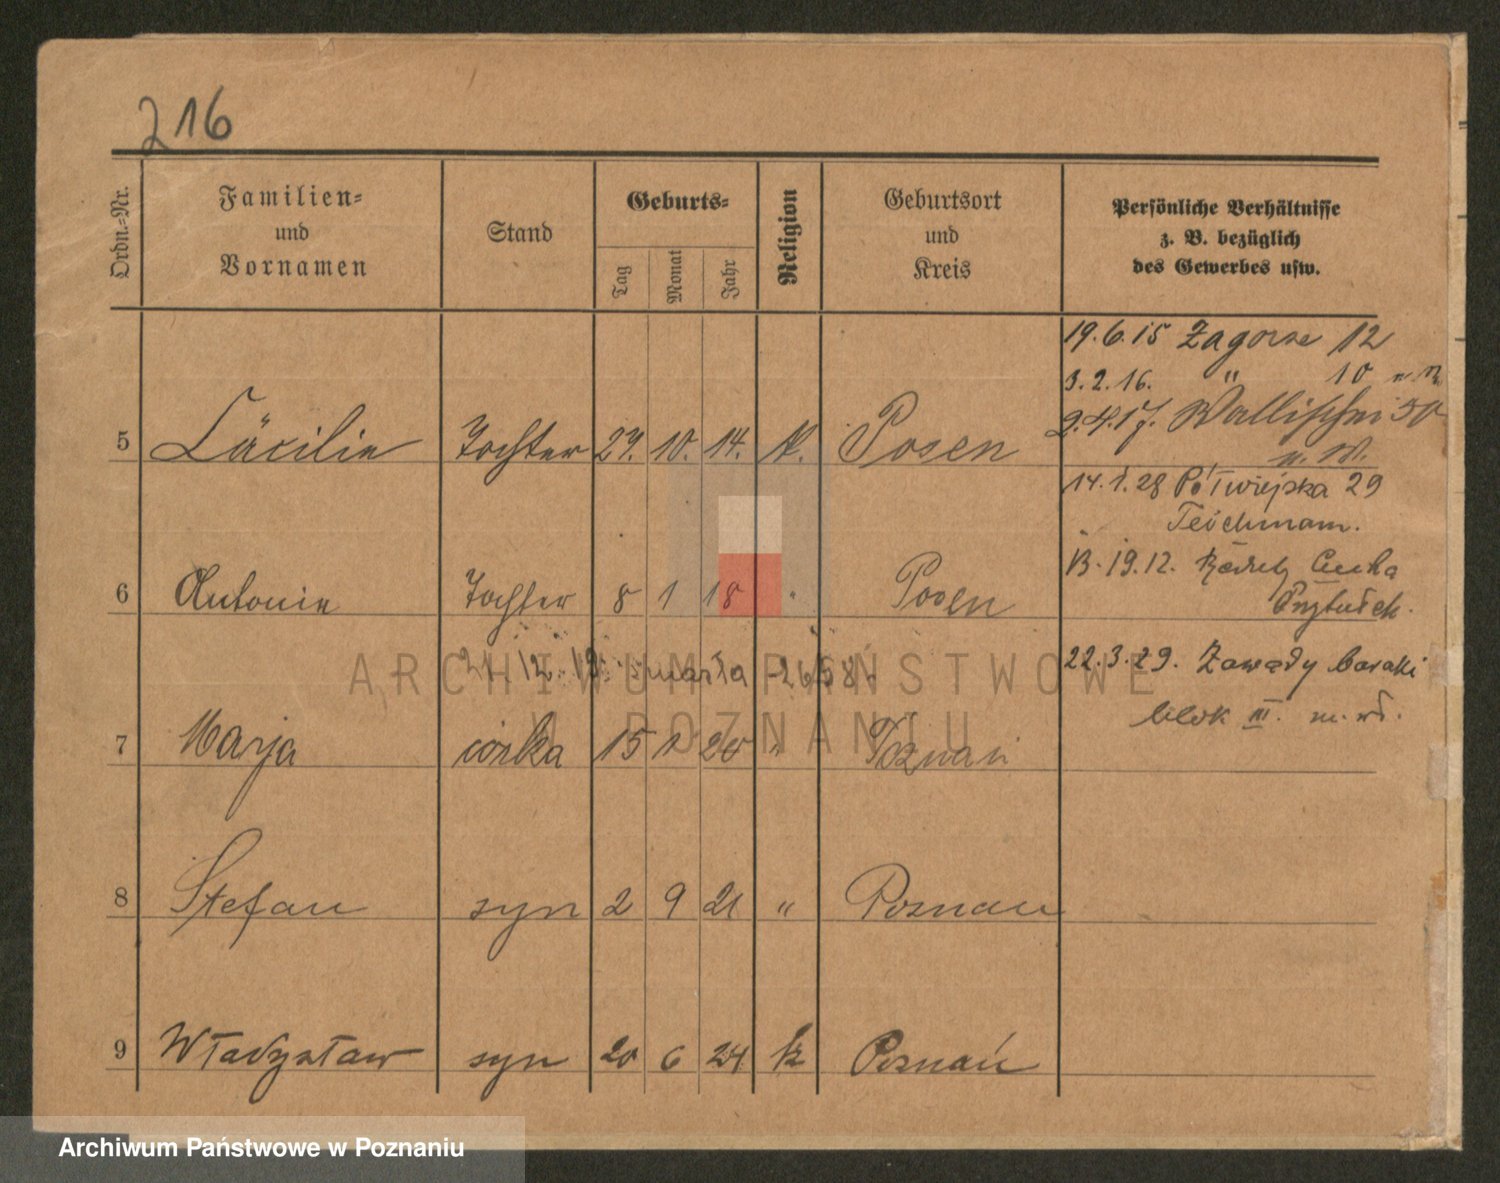 216
Ordn.-Nr.
Familien-
und
Vornamen
Stand
Geburts-
Tag
Monat
Jahr
Religion
Geburtsort
und
Kreis
Persönliche Verhältnisse
z. B. bezüglich
des Gewerbes usw.
19.6.15 Zagorze 12
3.2.16. " 10
2.4.17. Wallischei 50
5 Cäcilie Tochter 27. 10. 14. K. Posen
14.1.28 Półwiejska 29
B. 19.12.
6 Antonie Tochter 8 1 18 " Posen
22.3.29. Zawady baraki
blok III.
21.12.19. umarła
7 Marja córka 15 1 20 " Poznań
8 Stefan syn 2 9 21 " Poznan
9 Władysław syn 20 6 24 k Poznań
ARCHIWUM PAŃSTWOWE
W POZNANIU
Archiwum Państwowe w Poznaniu